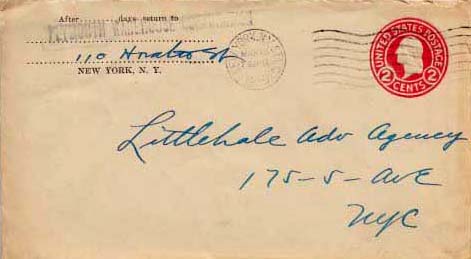 After.............days return to
PLYMOUTH WAREHOUSE
110 Horatio St
NEW YORK, N. Y.
UNITED STATES POSTAGE
2 CENTS 2
Littlehale Adv Agency
175-5-AvE
NYC